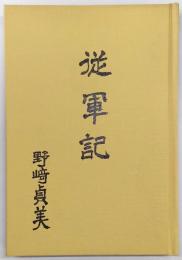 従軍記
野崎貞美